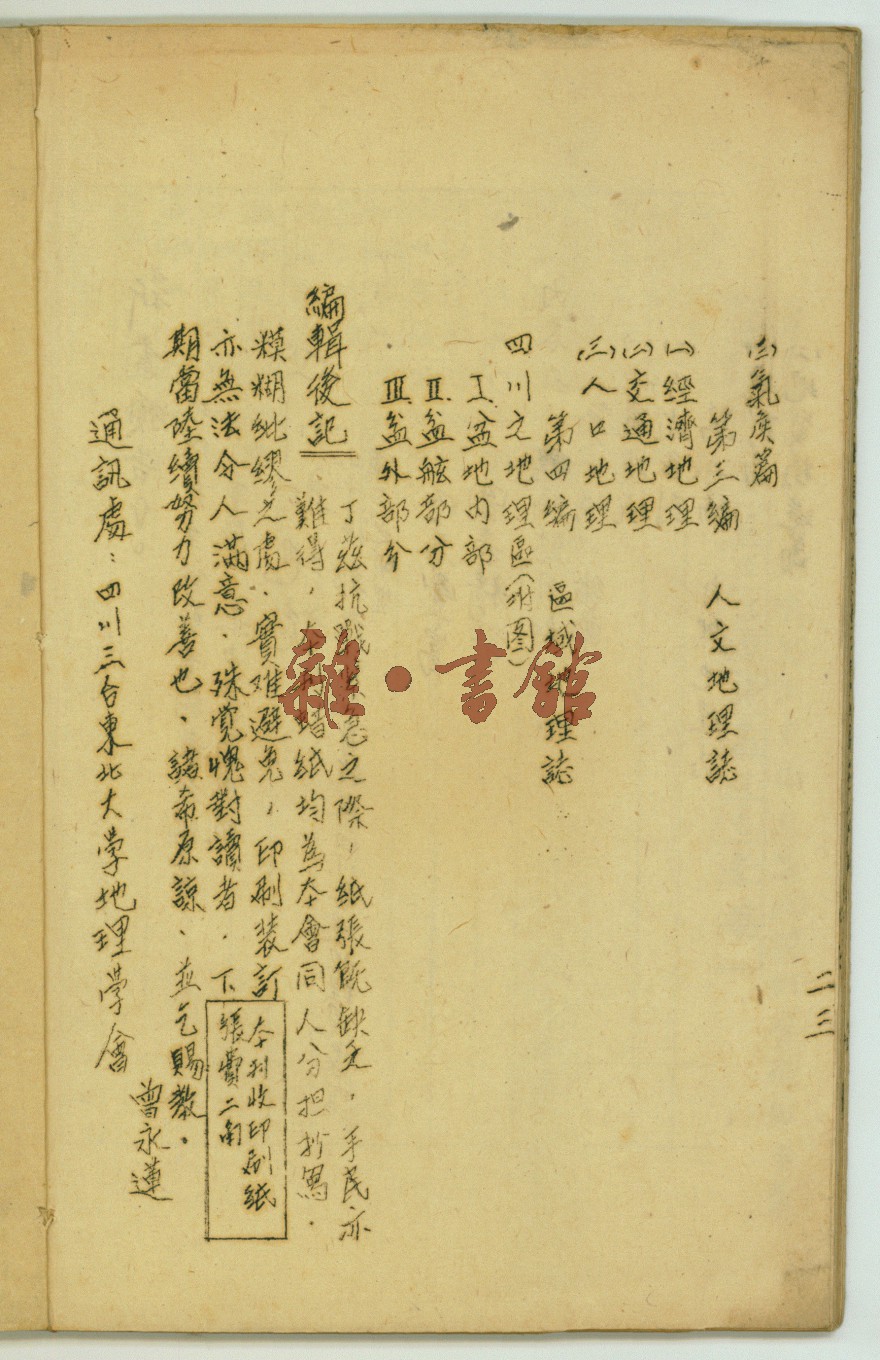 (三)氣候篇
第三編　人文地理誌
(一)經濟地理
(二)交通地理
(三)人口地理
第四編　區域地理誌
四川之地理區(附图)
I.盆地内部
II.盆舷部分
III.盆外部分
編輯後記
丁茲抗戰緊急之際，紙張既缺乏，手民亦
難得，本刊蜡紙均為本會同人分担抄寫．
糢糊紕繆之處、實难避免，印刷裝訂
亦無法令人滿意．殊覚愧對讀者．下
期當陸續努力改善也、諸希原諒、並乞賜教。
曾永蓮
通訊處：四川三台東北大学地理学會
本刊收印刷紙
張費二角
二三
雜·書館